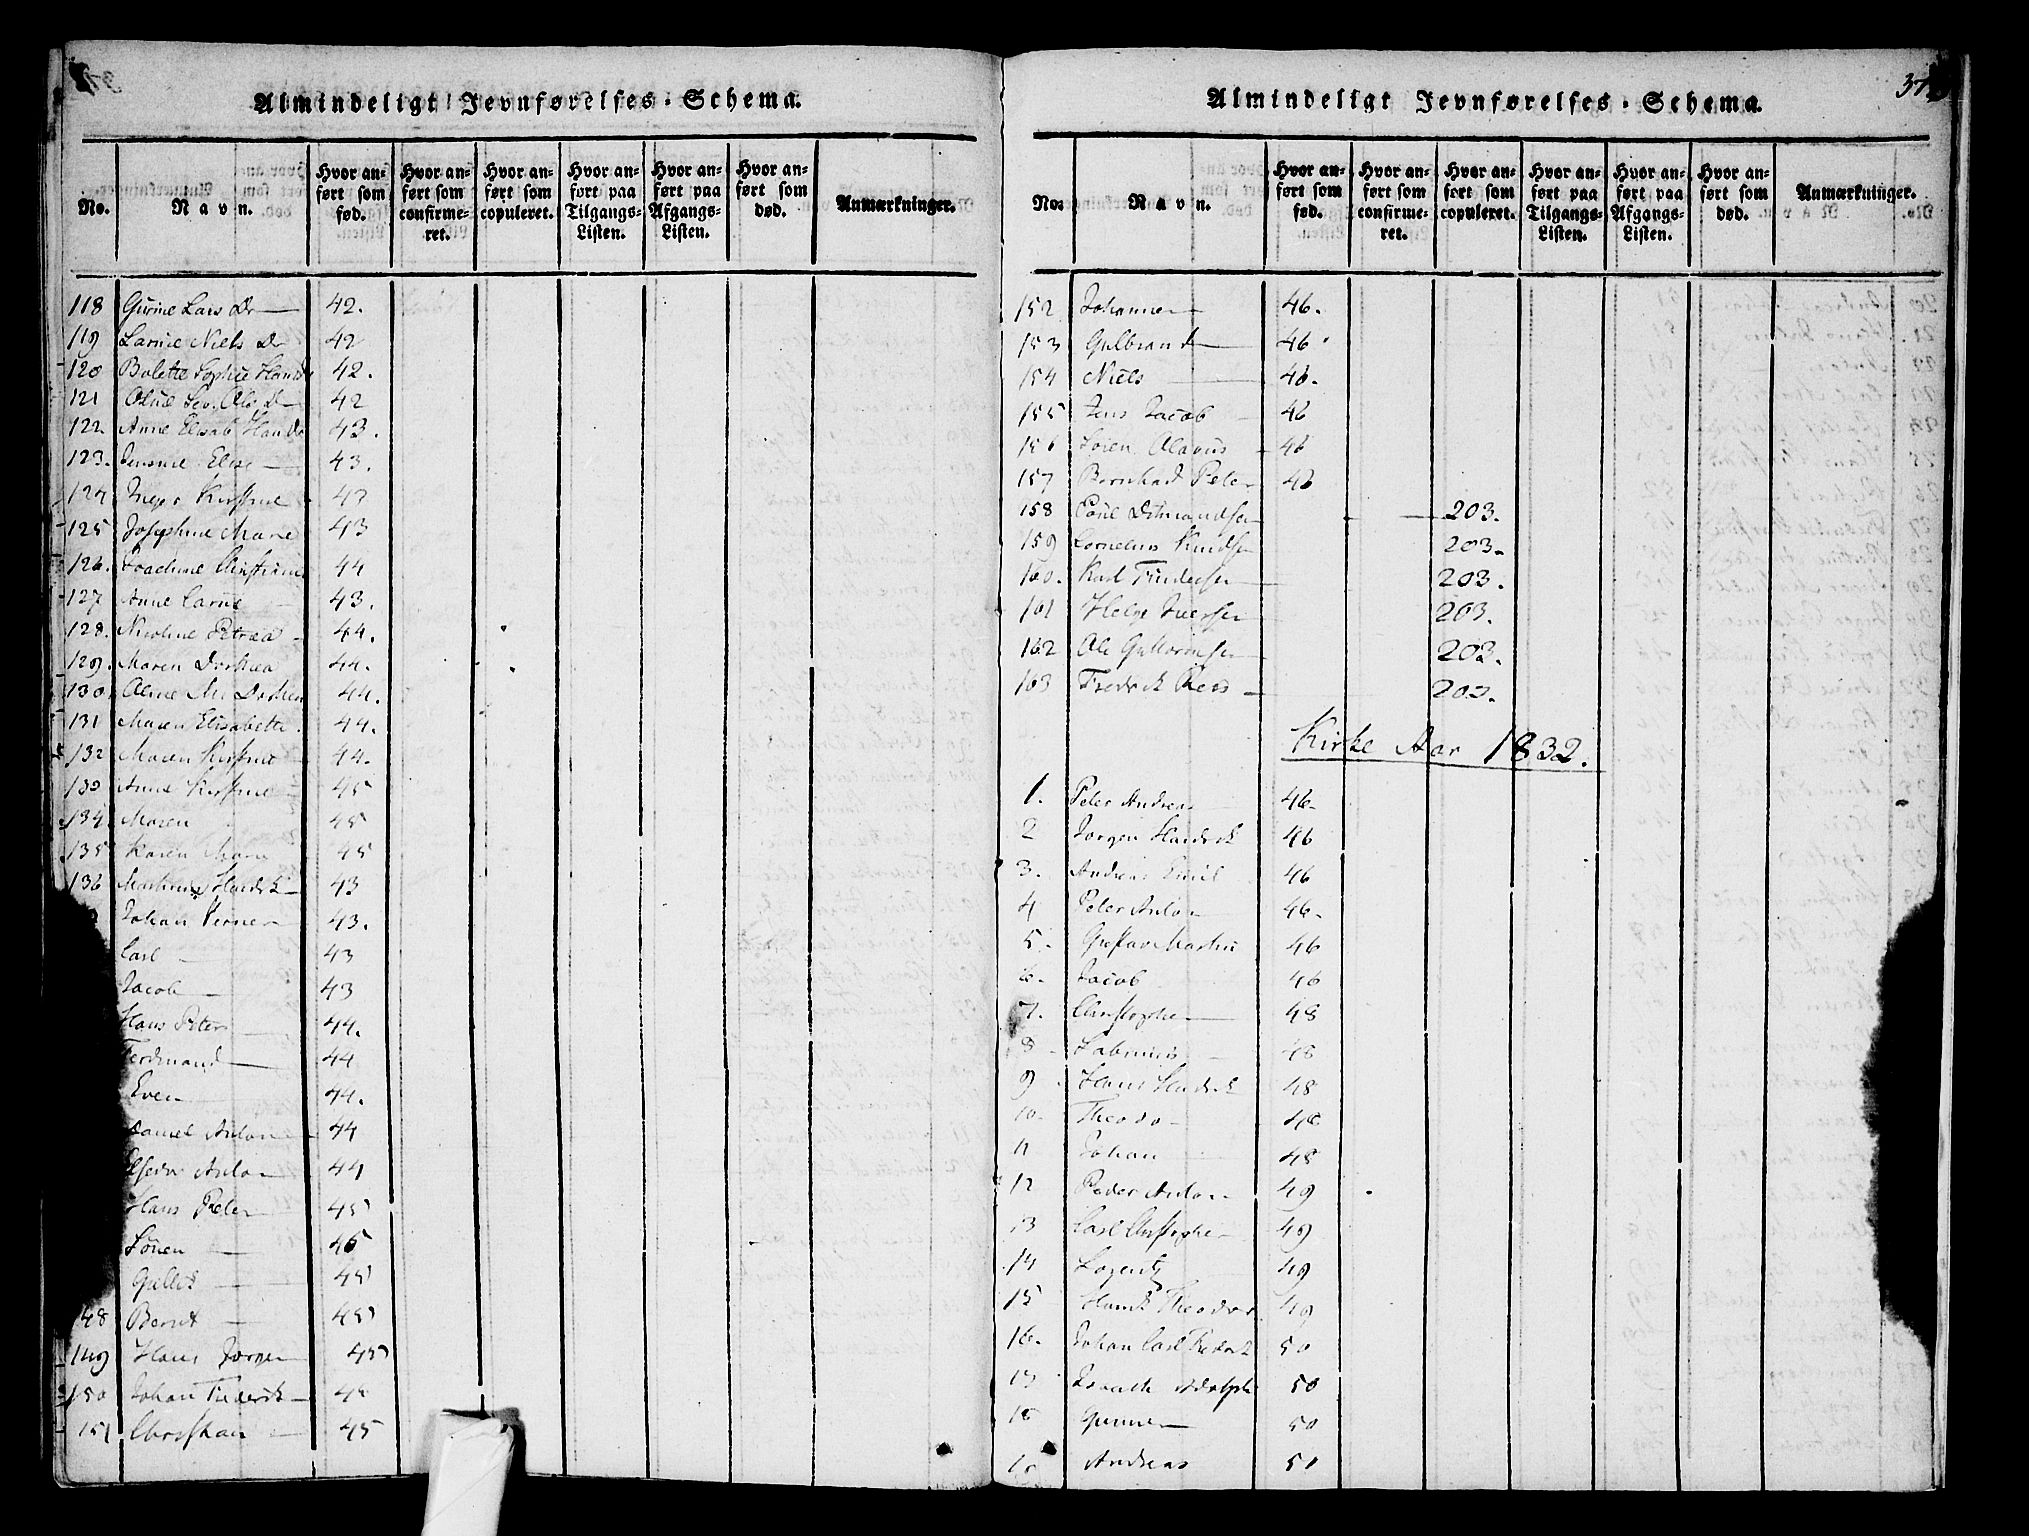 Almindeligt Jevnførelses-Schema.
No. Navn. Hvor anført som fød. Hvor anført som confirmeret. Hvor anført som copuleret. Hvor anført paa Tilgangs-Listen. Hvor anført paa Afgangs-Listen. Hvor anført som død. Anmærkninger.
118 Gurine Lars Dr 42.
119 Larine Niels Dr 42
120 Bolette Sophie 42.
121 Oline 42
122 Anne Elisab 43.
123. Jensine Elise 43.
124 Inger Kirstine 43
125 Josephine Marie 43
126. Joachime 44
127 Anne Carine 43.
128. Nicoline Petrea 44.
129. Maren Dorthea 44.
130. 44.
131 Maren Elisabeth. 44.
132 Maren Kirstine 44.
133 Anne Kirstine 45
134. Maren 45
135 Karen Marie 45
136 Hendrik 43
Johan Verner 43.
Carl 43
Jacob 43
Hans Peter 44.
Ferdinand 44
Even 44.
Daniel Anton 44
Anton 44
Hans Peter 45
Sören 45
45
48 Bernt 45
149 Hans Jørgen 45
150 Johan Frederik 45
151 Christian 45
Almindeligt Jevnførelses-Schema. 37
No. Navn. Hvor anført som fød. Hvor anført som confirmeret. Hvor anført som copuleret. Hvor anført paa Tilgangs-Listen. Hvor anført paa Afgangs-Listen. Hvor anført som død. Anmærkninger.
152 Johannes 46.
153 Gulbrand 46
154 Niels 46.
155 Jens Jacob 46
156 Sören Olavus 46
157 Bernhard Peter 46
158 203.
159 Cornelius Knudsen 203.
160. Karl 203.
161 Helge Iversen 203.
162 Ole Guttormsen 203.
163 Fredrik 203.
Kirke Aar 1832.
1. Peter Andreas 46.
2 Jørgen Hendrik 46
3. Andreas Emil 46
4 Peter Anton 46.
5. Gustav Martin 46
6. Jacob 46
7. Christopher 48
8 48
9 Hans Hendrik 48
10. Theodor 48
11 Johan 48
12 Peder Anton 49
13 Carl Christopher 49
14 Lorentz 49
15 Theodor 49
16. Johan Carl Fredrik 50
17 Adolph 50
18 Gunner 50
Andreas 50